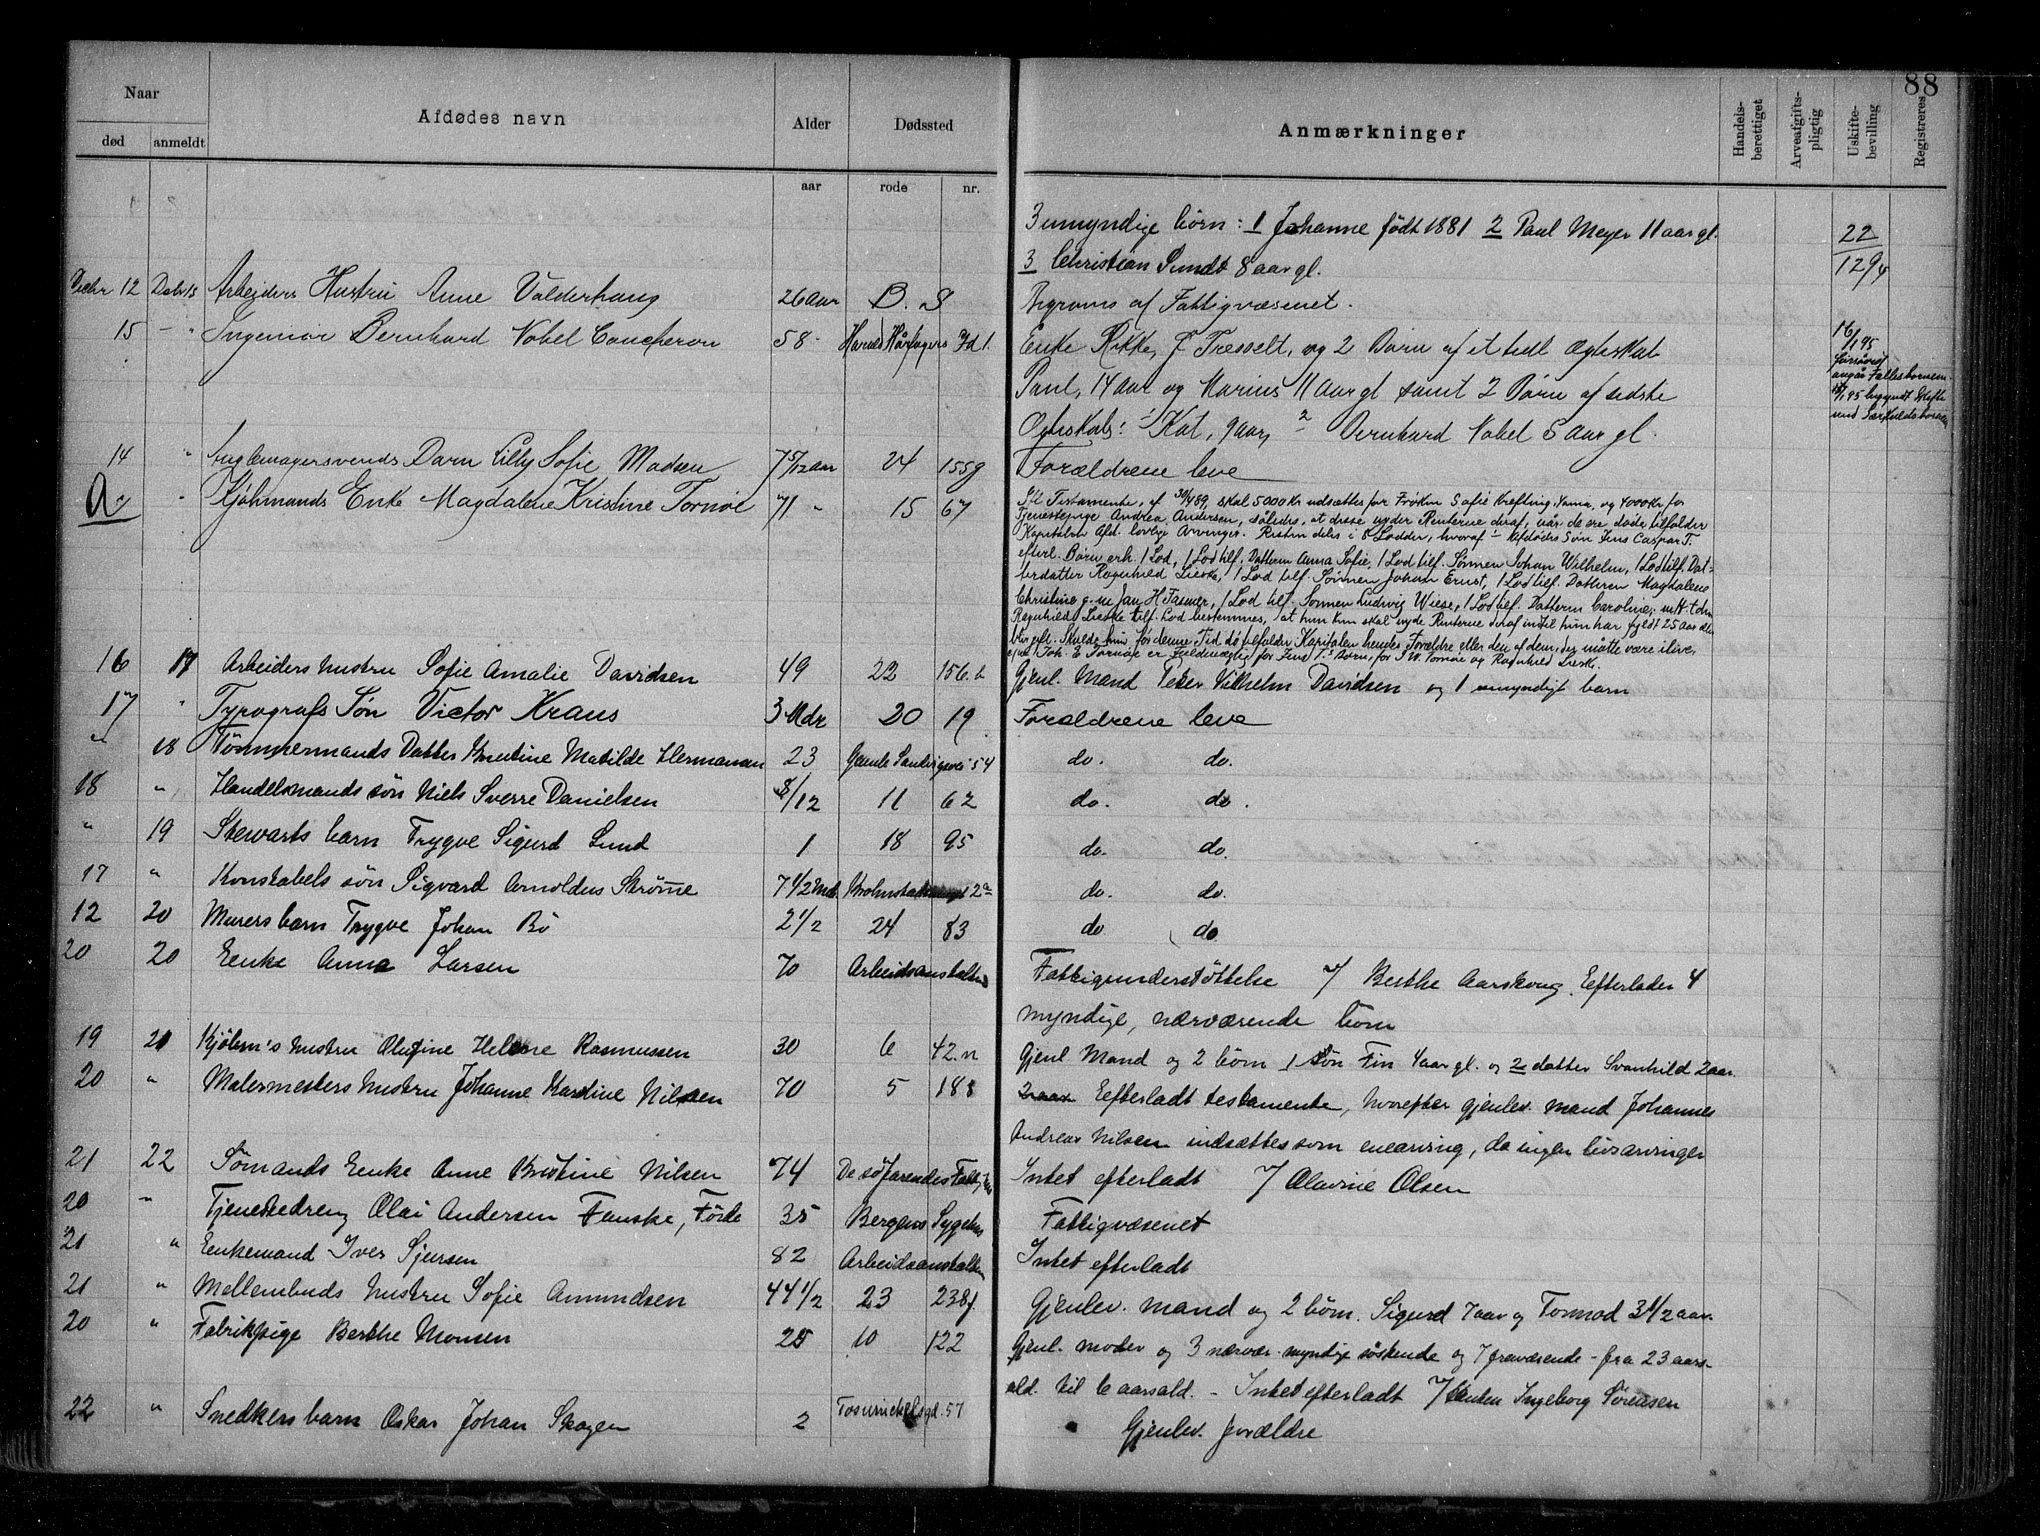 88
Naar
Afdødes navn
Alder
Dødssted
Anmærkninger
Handels-berettiget
Arveafgifts-pligtig
Uskifte-bevilling
Registreres
død anmeldt
aar rode nr.
3 umyndige børn: 1 Johanne født 1881 2 Paul Meyer 11 aar gl. 22
3 Christian Sundt 8 aar gl. 12 94
12 Arbeiders Hustru Anne Valderhaug 26 aar B. S af Fattigvæsenet.
15 Ingeniør Bernhard Nobel 58 Harald Hårfagers Gd 1. Enke Rikke, f Tresselt, og 2 Børn af et tidl Ægteskab 16/1 95
Paul, 14 aar og Marius 11 aar gl samt 2 Børn af sidste
Ægteskab: 1 Kat, 9 aar, 2 Bernhard Nobel 5 aar gl.
14 " Barn Lilly Sofie Madsen 7 5/12 aar 24 155g Forældrene leve
" Kjøbmands Enke Magdalene Kristine Tornøe 71 " 15 67
Testamente, af 30/4 89, skal 5000 Kr udsættes for Frøken Sofie Krefting, og 4000 Kr for
Tjenestepige Andrea Andersen, således, at disse nyder Renterne deraf, når de ere døde tilfalder
Kapitalen Afd. lovlige Arvinger. Resten deles i 8 Lodder, hvoraf Afdødes Søn Jens Caspar T.
efterl. Børn erh. 1 Lod, 1 Lod tilf. Datteren Anna Sofie, 1 Lod tilf. Sønnen Johan Wilhelm, 1 Lod tilf. Dat-
terdatter Ragnhild Lieske, 1 Lod tilf. Sønnen Johan Ernst, 1 Lod tilf. Datteren Magdalene
Christine g. m. Jan H Fasmer, 1 Lod tilf. Sønnen Ludvig Wiese, 1 Lod tilf. Datteren Caroline;
Ragnhild Lieske tilf. Lod bestemmes, at hun kun skal nyde Renterne deraf indtil hun har fyldt 25 Aar
Skulde hun før denne Tid dø tilfalder Kapitalen hendes Forældre eller den af dem, der måtte være ilive,
Joh. E Tornøe er Fuldmægtig for Jens T's Børn, for J W. Tornøe og Ragnhild Liesk.
16 17 Arbeiders hustru Sofie Amalie Davidsen 49 22 156.b Gjenl. Mand Peter Vilhelm Davidsen og 1 umyndigt barn
17 " Typografs Søn Victor Kraus 3 Mdr 20 19 Forældrene leve
" 18 Tømmermands Datter Matilde Hermansen 23 Gamle Sandvigsvei 54 do. do.
18 " Handelsmands søn Niels Sverre Danielsen 8/12 11 62 do. do.
" 19 Stewarts barn Trygve Sigurd Lund 1 18 95 do. do.
17 " Konstabels søn Sigvard Arnoldus Strømme 7 1/2 Md. 12a do. do.
12 20 Murers barn Trygve Johan Bø 2 1/2 24 83 do do
20 20 Enke Anna Larsen 70 Arbeidsanstalten Fattigunderstøttelse Berthe Aarskoug. Efterlader 4
myndige, nærværende børn
19 21 Kjøbm's hustru Olufine Helene Rasmussen 30 6 42.n Gjenl Mand og 2 børn 1 søn Fin 4 aar gl. og 2 datter Svanhild 2 aar.
20 " Malermesters hustru Johanne Karoline Nilsen 70 5 188 2 aar Efterladt testamente, hvorefter gjenlev. mand Johannes
Andreas Nilsen indsættes som enearving, da ingen livsarvinger
21 22 Sømands Enke Anne Kristine Nilsen 74 De søfarendes Intet efterladt Olavine Olsen
20 " Tjenestedreng Olai Andersen Fanske, Førde 35 Bergens Sygehus Fattigvæsenet
21 " Enkemand Iver Sjursen 82 Arbeidsanstalten Intet efterladt
21 " Mellembuds hustru Sofie Amundsen 44 1/2 23 238f. Gjenlev. mand og 2 børn. Sigurd 7 aar og Tormod 3 1/2 aar.
20 " Fabrikpige Berthe Monsen 25 10 122 Gjenl. moder og 3 nærvær. myndige søskende og 7 fraværende - fra 23 aars-
ald. til 6 aarsald. - Intet efterladt Ingeborg Sørensen
22 " Snedkers barn Oskar Johan Skogen 2 57 Gjenlev. forældre